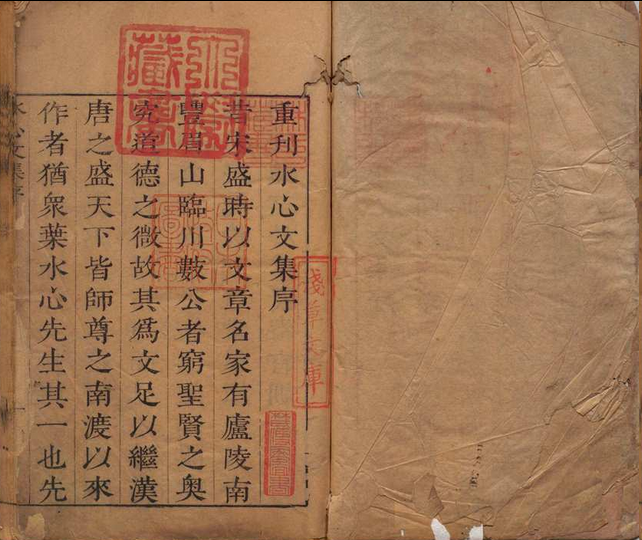 重刊水心文集序
昔宋盛時以文章名家有廬陵南
豐眉山臨川數公者窮聖賢之奥
究道德之微故其爲文足以繼漢
唐之盛天下皆師尊之南渡以來
作者猶衆葉水心先生其一也先
水心文集序
淺草文庫